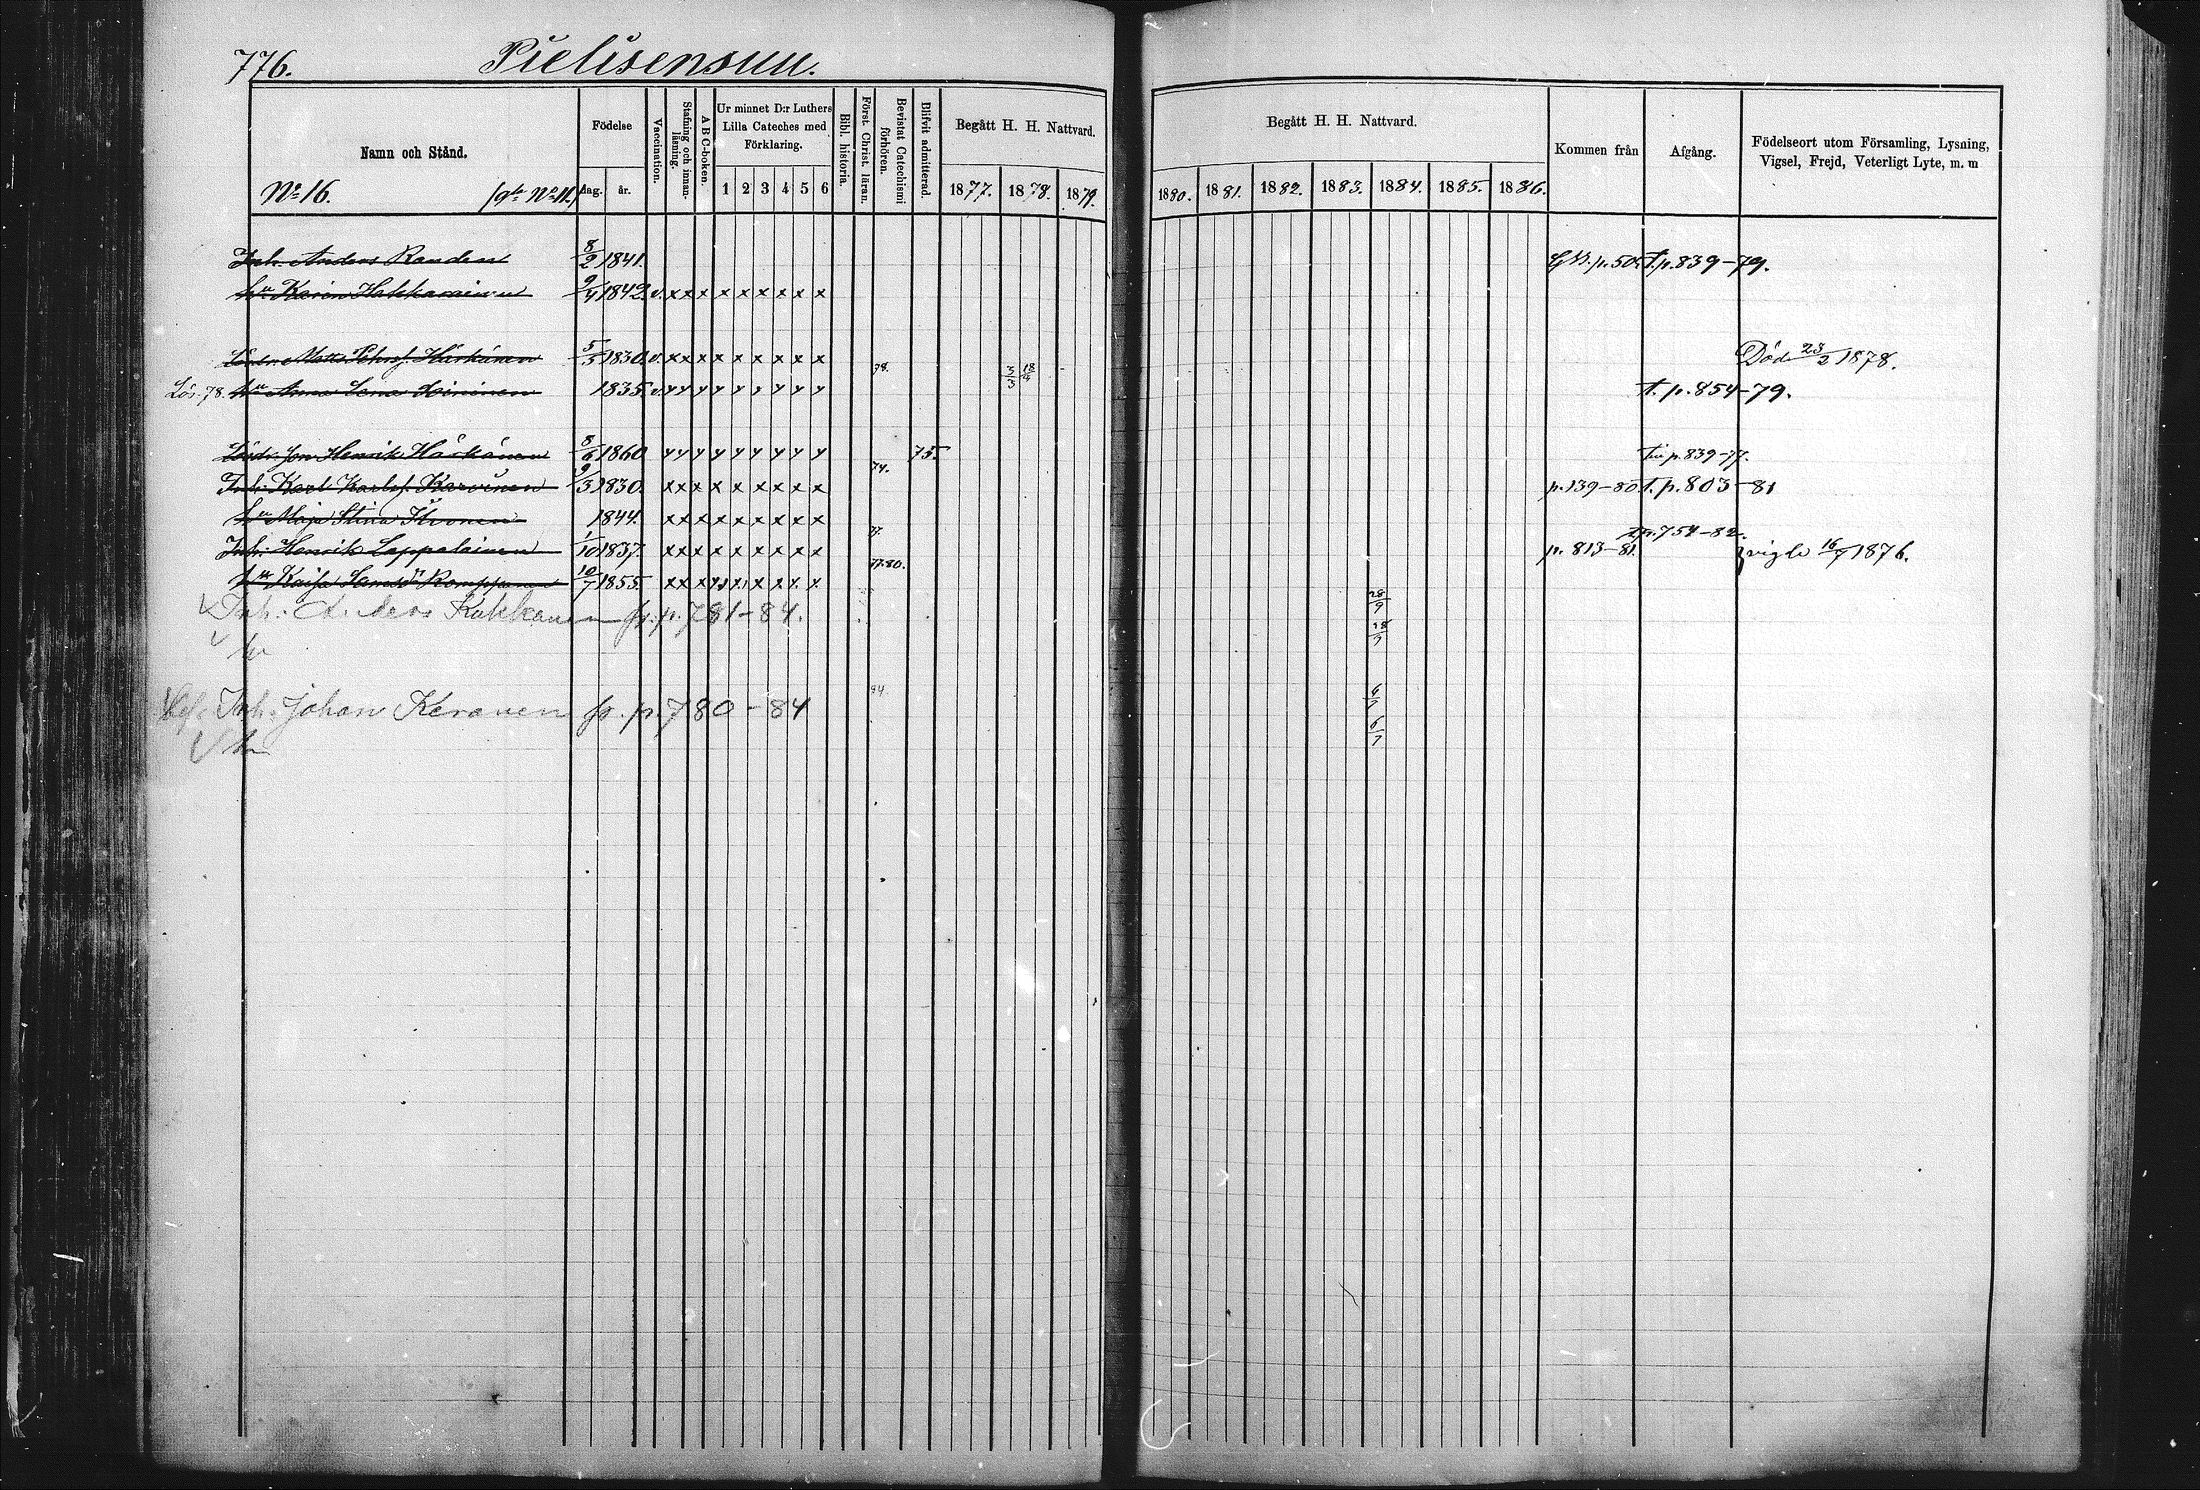 776. Pielisensuu.
Namn och Stånd.
Födelse
dag. år.
Vaccination.
Stafning och innanläsning.
A B C-boken.
Ur minnet D:r Luthers Lilla Cateches med Förklaring.
1 2 3 4 5 6
Bibl. historia.
Först. Christ. läran.
Bevistat Catechismi förhören.
Blifvit admitterad.
Begått H. H. Nattvard.
1877. 1878. 1879.
Begått H. H. Nattvard.
1880. 1881. 1882. 1883. 1884. 1885. 1886.
Kommen från
Afgång.
Födelseort utom Församling, Lysning, Vigsel, Frejd, Veterligt Lyte, m. m
No 16. No 11.
Inh. Anders Randen 8/2 1841. p. 50. T. p. 839-79.
hu Karin Hakkarainen 9/4 1842. v. x x x x x x x x x
Matts Härkönen 5/5 1830. v. x x x x x x x x x Död 23/2 1878.
Lös. 78. hu Anna Lena 1835. v. 78. 3/3 T. p. 854-79.
Henrik Härkönen 8/6 1860 75. p. 839-77.
Inh. Karl Karlss. Karvinen 9/3 1830. x x x x x x x x x 74. p. 139-80. T. p. 803-81
hu Maja Stina 1844. x x x x x x x x x
Inh. Henrik Lappalainen 1/10 1837. x x x x x x x x x 77. p. 813-81. p. 754-82. vigde 16/7 1876.
hu Kaisa Romppanen 10/7 1855. x x x x x x x x x 77.80.
Inh. Anders Kukkonen fr. p. 781-84. 28/9
hu 28/9
Inh. Johan Keronen fr. p. 780-84 84 6/7
hu 6/7